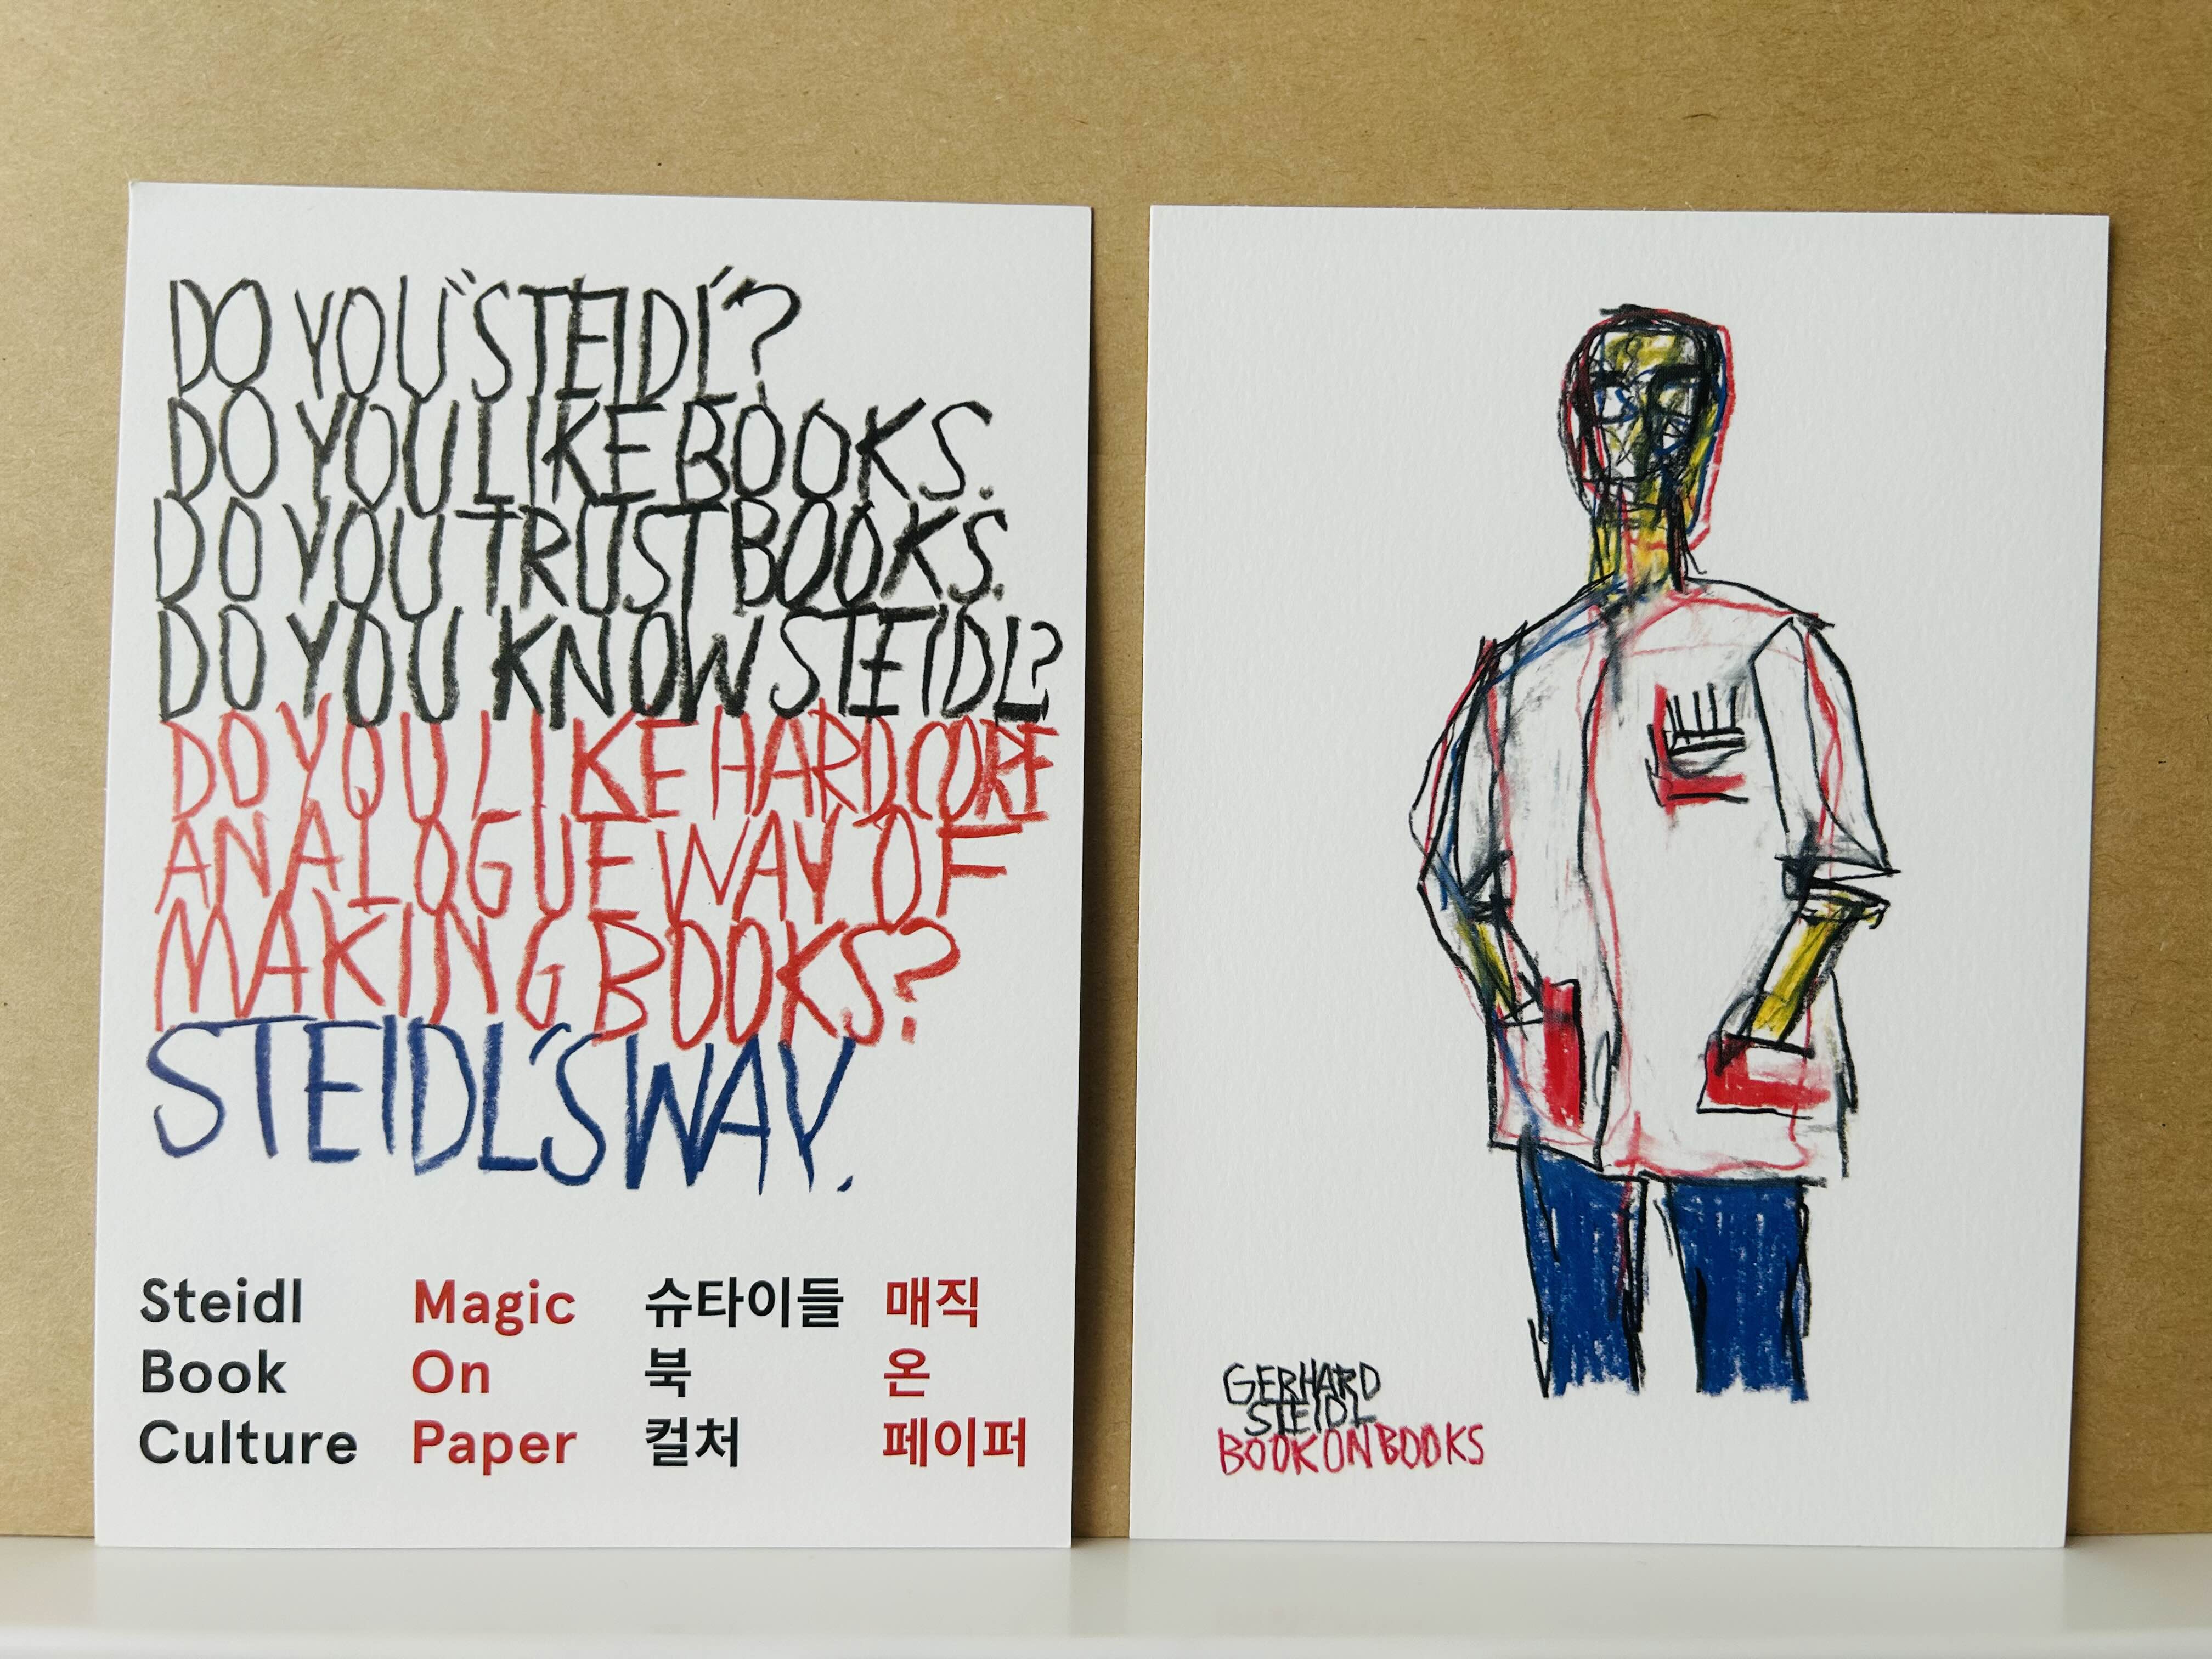 DO YOU "STEIDL"?
DO YOU LIKE BOOKS.
DO YOU TRUST BOOKS.
DO YOU KNOW STEIDL?
DO YOU LIKE HARDCORE
ANALOGUE WAY OF
MAKING BOOKS?
STEIDL'S WAY.
Steidl Magic 슈타이들 매직
Book On 북 온
Culture Paper 컬처 페이퍼
GERHARD
STEIDL
BOOK ON BOOKS